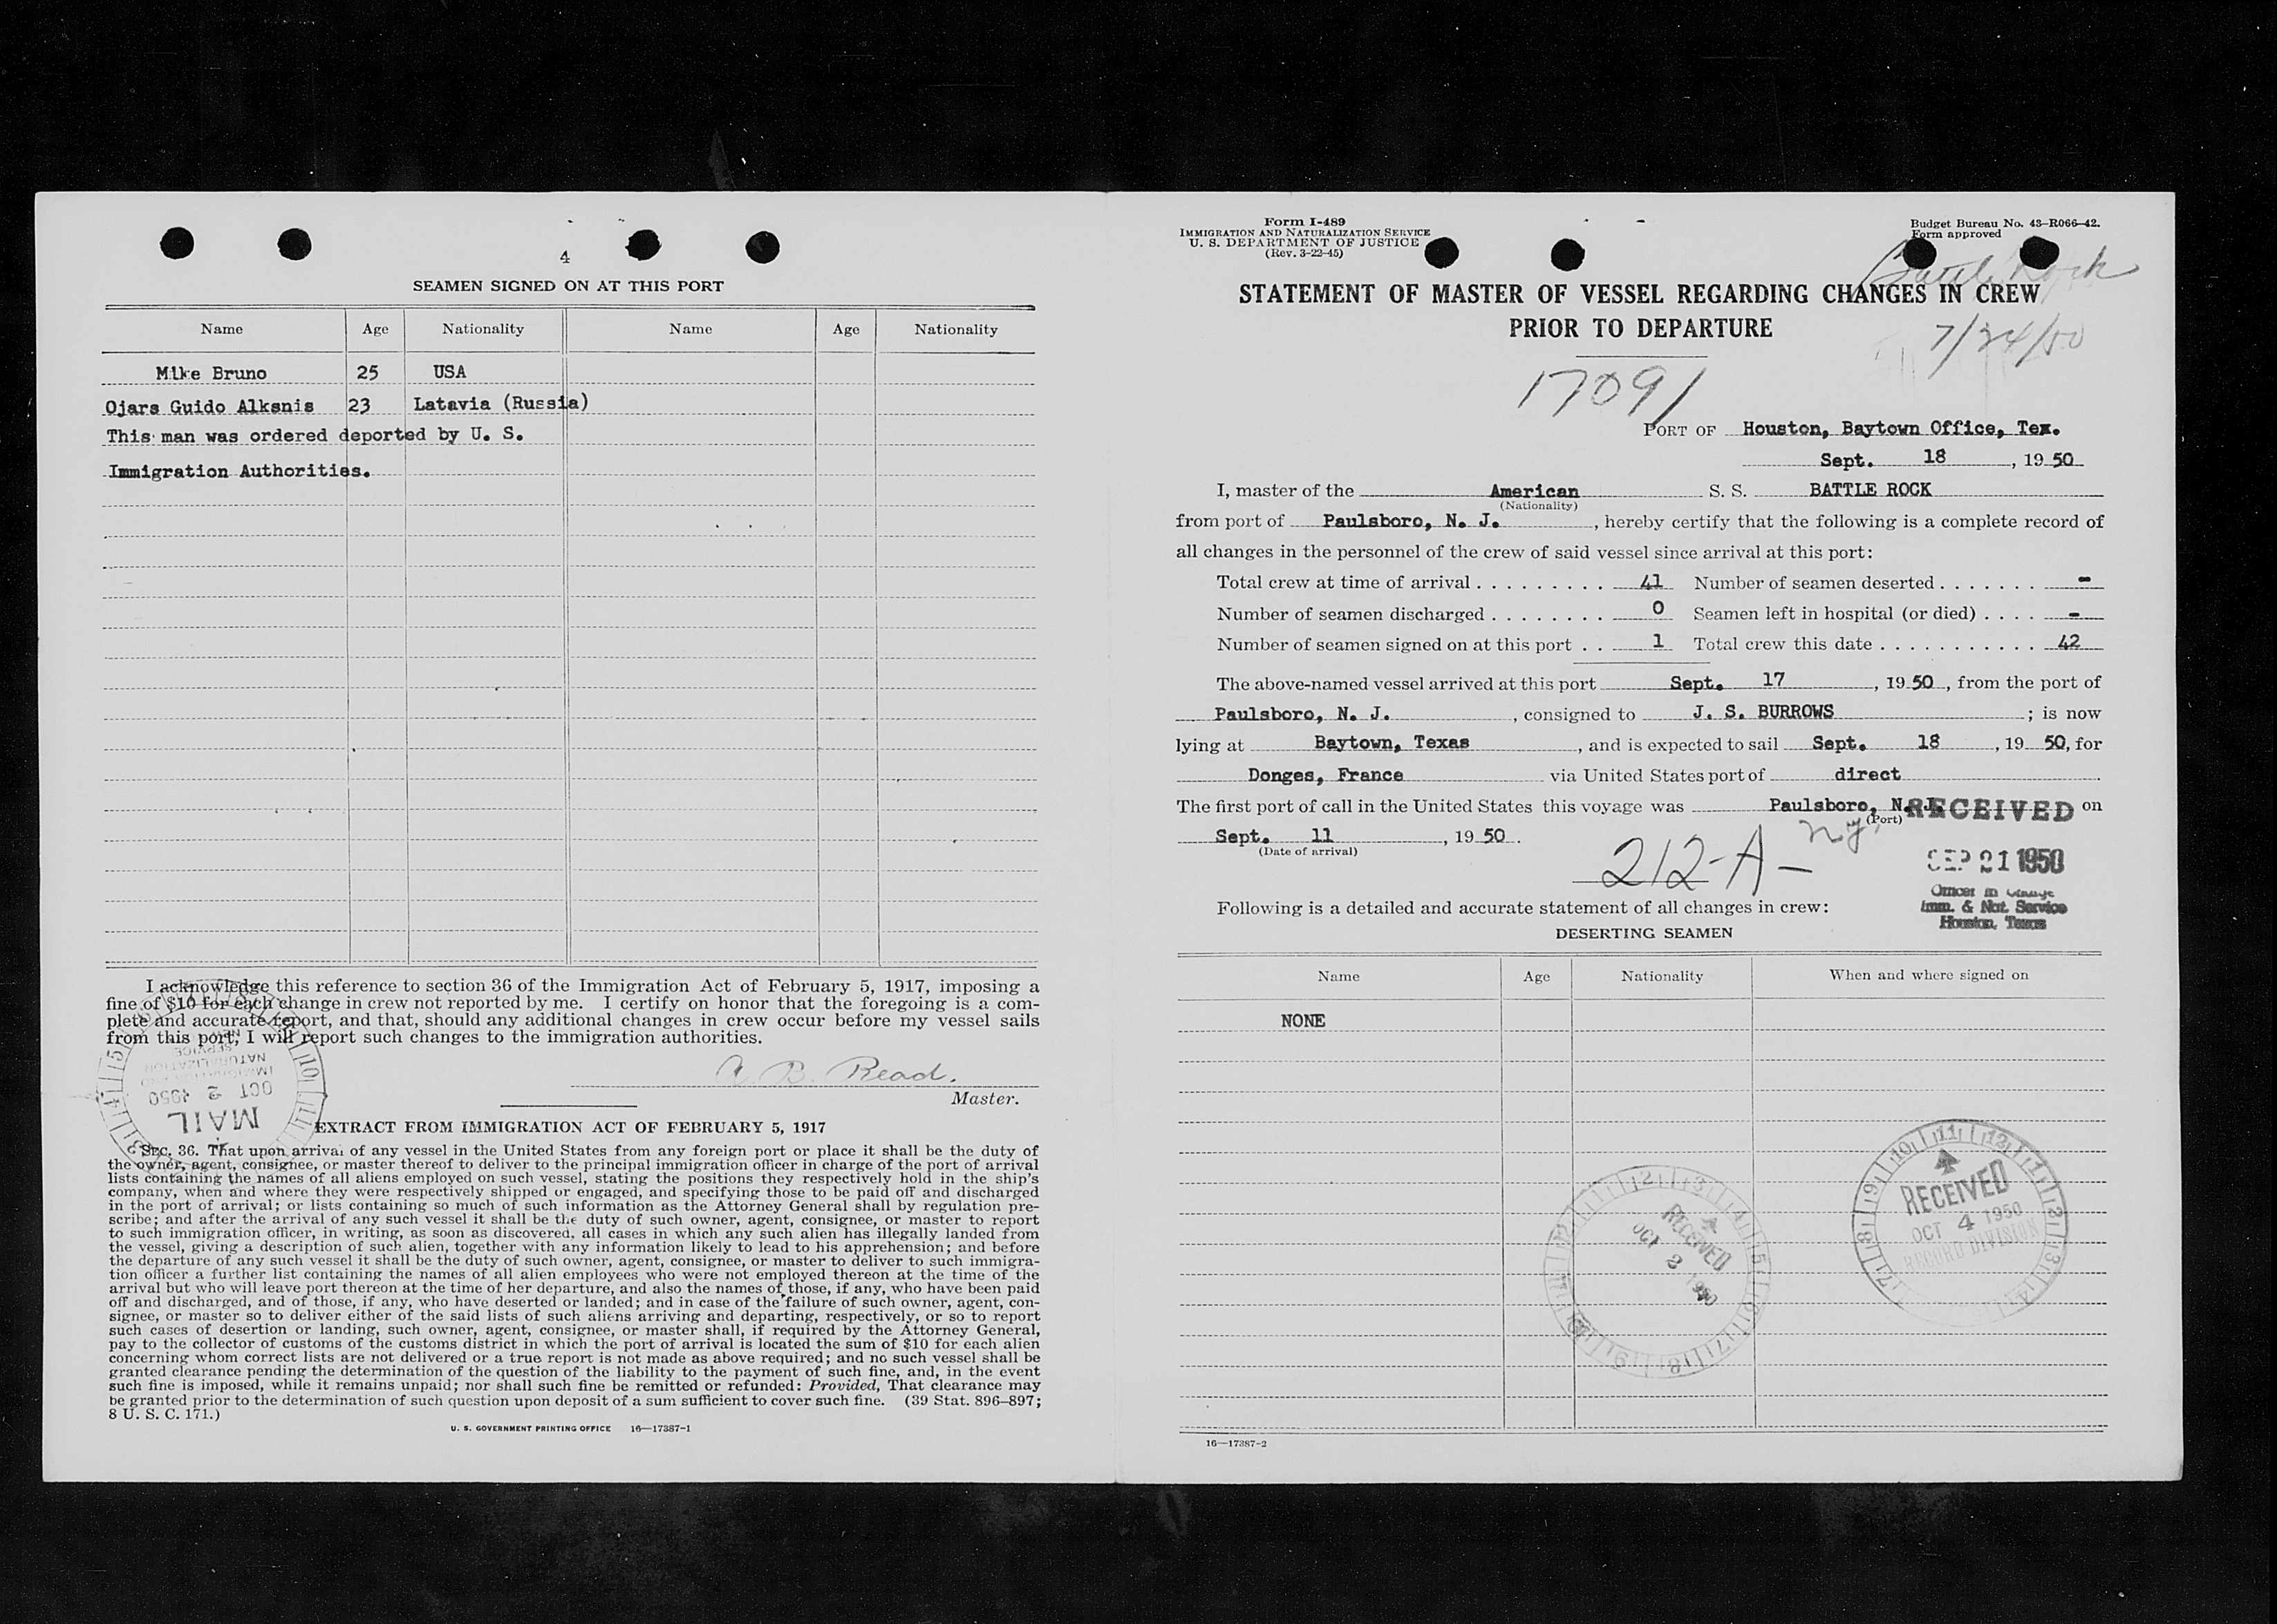 4
SEAMEN SIGNED ON AT THIS PORT
Name Age Nationality Name Age Nationality
Mike Bruno 25 USA
Ojars Guido Alksnis 23 Latavia (Russia)
This man was ordered deported by U. S.
Immigration Authorities.
I acknowledge this reference to section 36 of the Immigration Act of February 5, 1917, imposing a
fine of $10 for each change in crew not reported by me. I certify on honor that the foregoing is a com-
plete and accurate report, and that, should any additional changes in crew occur before my vessel sails
from this port, I will report such changes to the immigration authorities.
A. B. Read.
Master.
IMMIGRATION AND
NATURALIZATION
SERVICE
OCT 2 1950
MAIL
EXTRACT FROM IMMIGRATION ACT OF FEBRUARY 5, 1917
SEC. 36. That upon arrival of any vessel in the United States from any foreign port or place it shall be the duty of
the owner, agent, consignee, or master thereof to deliver to the principal immigration officer in charge of the port of arrival
lists containing the names of all aliens employed on such vessel, stating the positions they respectively hold in the ship's
company, when and where they were respectively shipped or engaged, and specifying those to be paid off and discharged
in the port of arrival; or lists containing so much of such information as the Attorney General shall by regulation pre-
scribe; and after the arrival of any such vessel it shall be the duty of such owner, agent, consignee, or master to report
to such immigration officer, in writing, as soon as discovered, all cases in which any such alien has illegally landed from
the vessel, giving a description of such alien, together with any information likely to lead to his apprehension; and before
the departure of any such vessel it shall be the duty of such owner, agent, consignee, or master to deliver to such immigra-
tion officer a further list containing the names of all alien employees who were not employed thereon at the time of the
arrival but who will leave port thereon at the time of her departure, and also the names of those, if any, who have been paid
off and discharged, and of those, if any, who have deserted or landed; and in case of the failure of such owner, agent, con-
signee, or master so to deliver either of the said lists of such aliens arriving and departing, respectively, or so to report
such cases of desertion or landing, such owner, agent, consignee, or master shall, if required by the Attorney General,
pay to the collector of customs of the customs district in which the port of arrival is located the sum of $10 for each alien
concerning whom correct lists are not delivered or a true report is not made as above required; and no such vessel shall be
granted clearance pending the determination of the question of the liability to the payment of such fine, and, in the event
such fine is imposed, while it remains unpaid; nor shall such fine be remitted or refunded: Provided, That clearance may
be granted prior to the determination of such question upon deposit of a sum sufficient to cover such fine. (39 Stat. 896–897;
8 U. S. C. 171.)
U. S. GOVERNMENT PRINTING OFFICE 16—17387-1
Form I-489
IMMIGRATION AND NATURALIZATION SERVICE
U. S. DEPARTMENT OF JUSTICE
(Rev. 3-22-45)
Budget Bureau No. 43–R066–42.
Form approved
Battle Rock
STATEMENT OF MASTER OF VESSEL REGARDING CHANGES IN CREW
PRIOR TO DEPARTURE
7/24/50
17091
PORT OF Houston, Baytown Office, Tex.
Sept. 18, 1950
I, master of the American S. S. BATTLE ROCK
(Nationality)
from port of Paulsboro, N. J., hereby certify that the following is a complete record of
all changes in the personnel of the crew of said vessel since arrival at this port:
Total crew at time of arrival . . . . . . . . . 41 Number of seamen deserted . . . . . . . -
Number of seamen discharged . . . . . . . . 0 Seamen left in hospital (or died) . . . . -
Number of seamen signed on at this port . . 1 Total crew this date . . . . . . . . . . . 42
The above-named vessel arrived at this port Sept. 17, 1950, from the port of
Paulsboro, N. J., consigned to J. S. BURROWS; is now
lying at Baytown, Texas, and is expected to sail Sept. 18, 1950, for
Donges, France via United States port of direct
The first port of call in the United States this voyage was Paulsboro, N. J. on
(Port)
Sept. 11, 1950.
(Date of arrival)
RECEIVED
SEP 21 1950
Officer in Charge
Imm. & Nat. Service
Houston, Texas
212-A-
Following is a detailed and accurate statement of all changes in crew:
DESERTING SEAMEN
Name Age Nationality When and where signed on
NONE
RECEIVED
OCT 3 1950
RECEIVED
OCT 4 1950
RECORD DIVISION
16—17387-2